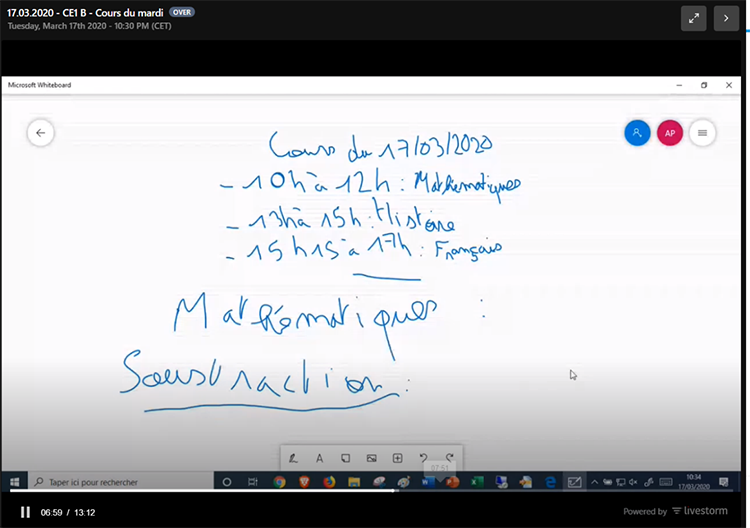 17.03.2020 - CE1 B - Cours du mardi OVER
Tuesday, March 17th 2020 - 10:30 PM (CET)
Microsoft Whiteboard
AP
Cours du 17/03/2020
- 10h à 12h : Mathématiques
- 13h à 15h : Histoire
- 15h15 à 17h : Français
Mathématiques :
Soustraction :
Taper ici pour rechercher
07:51
10:34
17/03/2020
06:59 / 13:12
Powered by livestorm